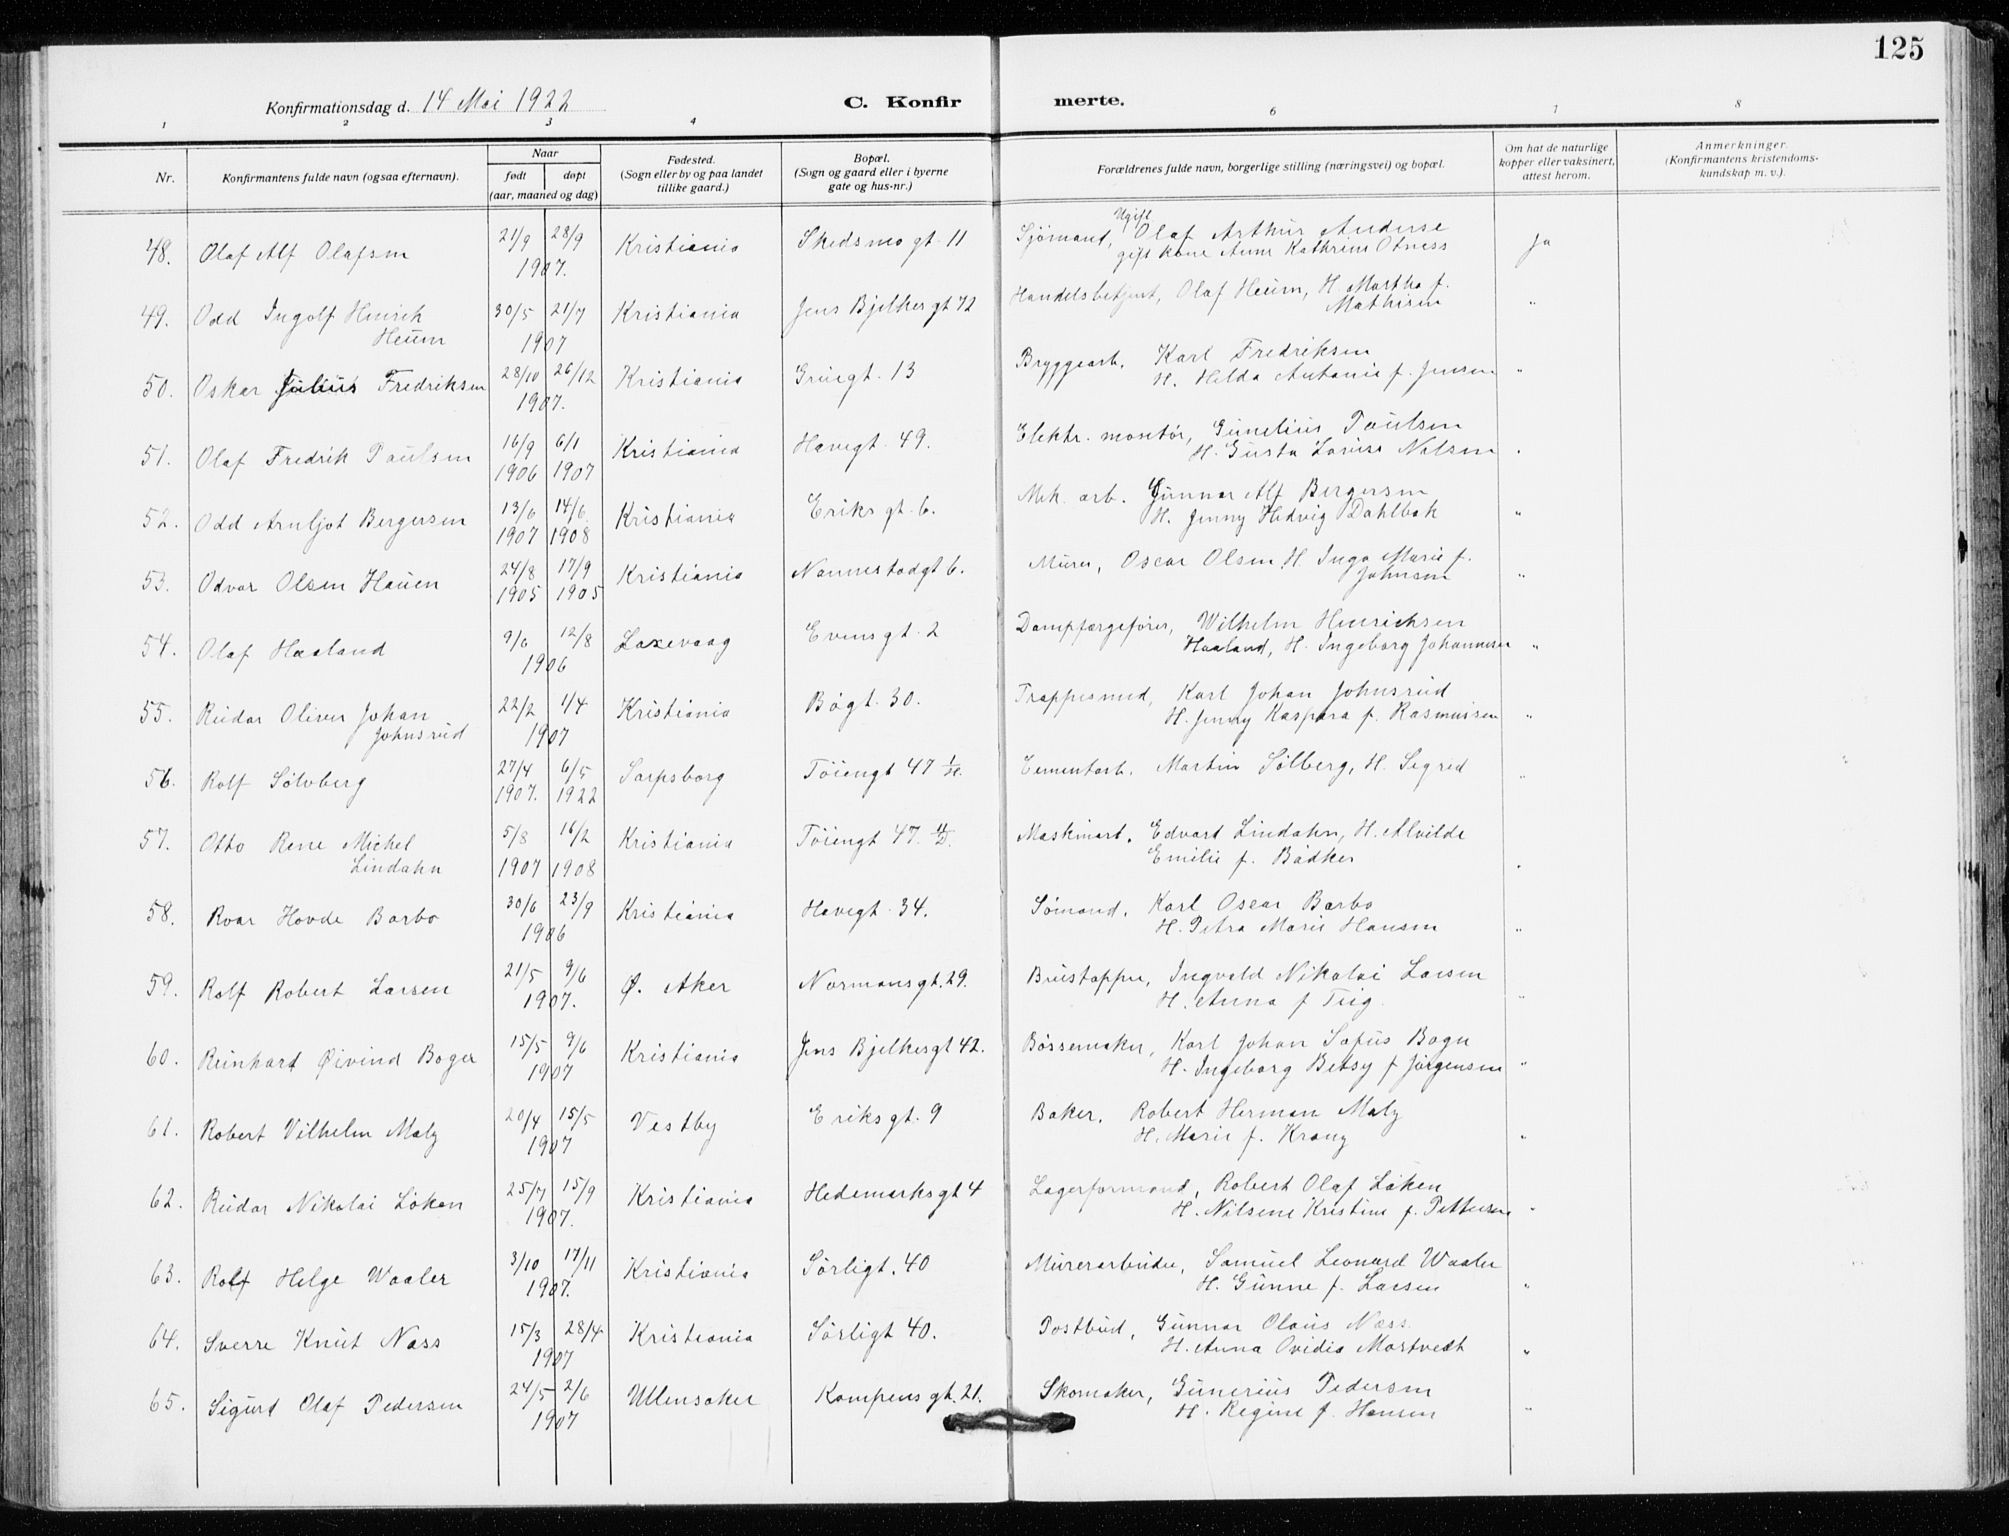 125
Konfirmationsdag d. 14 Mai 1922
C. Konfir merte.
1 2 3 4 6 7 8
Nr.
Konfirmantens fulde navn (ogsaa efternavn).
Naar
født døpt
(aar, maaned og dag)
Fødested.
(Sogn eller by og paa landet
tillike gaard.)
Bopæl.
(Sogn og gaard eller i byerne
gate og hus-nr.)
Forældrenes fulde navn, borgerlige stilling (næringsvei) og bopæl.
Om hat de naturlige
kopper eller vaksinert,
attest herom.
Anmerkninger.
(Konfirmantens kristendoms-
kundskap m. v.).
Ugift
48. Olaf Alf Olafsen 21/9 28/9 Kristiania Skedsmogt. 11 Sjømand, Olaf Arthur Anderse ja
1907. gift kone Anne Kathrine Otness
49. Odd Ingolf Hinrik 30/5 21/7 Kristiania Jens Bjelkes gt 72 Handelsbetjent, Olaf Heum, H. Martha f. "
Heum 1907 Mathisen
50. Oskar Julius Fredriksen 28/10 26/12 Kristiania Grüsgt. 13 Bryggearb. Karl Fredriksen "
1907. H. Hilda Antonie f. Jensen
51. Olaf Fredrik Paulsen 16/9 6/1 Kristiania Havegt. 49. Elektr. montør, Gunelius Paulsen "
1906 1907 H. Gusta Lovise Nilsen
52. Odd Arnljot Bergersen 13/6 14/6 Kristiania Eriks gt. 6. Mek. arb. Gunnar Alf Bergersen "
1907 1908 H. Jenny Hedvig Dahlbak
53. Odvar Olsen Hauen 24/8 17/9 Kristiania Nannestadgt 6. Murer, Oscar Olsen, H. Inga Marie f. "
1905 1905 Johnsen
54. Olaf Haaland 9/6 12/8 Laxevaag Evensgt. 2 Dampfærgefører, Wilhelm Henrichsen
1906 Haaland, H. Ingeborg Johannesen "
55. Reidar Oliver Johan 22/2 1/4 Kristiania Bøgt. 30. Trappesmed, Karl Johan Johnsrud
Johnsrud 1907 H. Jenny Kaspara f. Rasmussen "
56. Rolf Sølvberg 27/4 6/5 Sarpsborg Tøiengt 47 1/H. Cementarb. Martin Sølberg, H. Sigrid "
1907. 1922
57. Otto Rene Michel 5/8 16/2 Kristiania Tøiengt 47. Maskinarb. Edvard Lindahn, H. Alvilde
Lindahn 1907 1908 Emilie f. Bødker "
58. Roar Hovde Barbo 30/6 23/9 Kristiania Havegt. 34. Sømand. Karl Oscar Barbo
1906 H. Petra Marie Hansen "
59. Rolf Robert Larsen 21/5 9/6 Ø. Aker Normansgt. 29. Brustapper, Ingvald Nikolai Larsen
1907. H. Anna f "
60. Reinhard Øivind Boger 15/5 9/6 Kristiania Jens Bjelkesgt 42. Bøssemaker, Karl Johan Sofus Boger
1907 H. Ingeborg Betsy f Jørgensen "
61. Robert Vilhelm Malz 20/4 15/5 Vestby Eriksgt. 9 Baker. Robert Herman Malz
1907 H. Marie f. Krany "
62. Reidar Nikolai Løken 25/7 15/9 Kristiania Hedemarksgt 4 Lagerformand, Robert Olaf Løken
1907. H. Nilsine Kristine f. Pettersen "
63. Rolf Helge Waaler 3/10 17/11 Kristiania Sørligt. 40 Murerarbeider, Samuel Leonard Waaler
1907. H. Gunne f. Larsen "
64. Sverre Knut Næss 15/3 28/4 Kristiania Sørligt 40. Postbud, Gunnar Olaus Næss.
1907 H. Anna Ovidia Mortvedt "
65. Sigurd Olaf Pedersen 24/5 2/6 Ullensaker Kampensgt. 21. Skomaker, Gunerius Pedersen
1907 H. Regine f. Hansen "